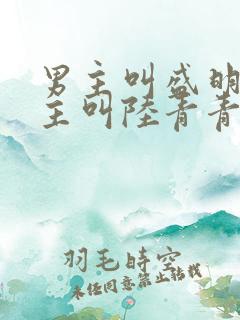 男主叫盛明
主叫陸青青
羽毛時空
未经同意禁止转载